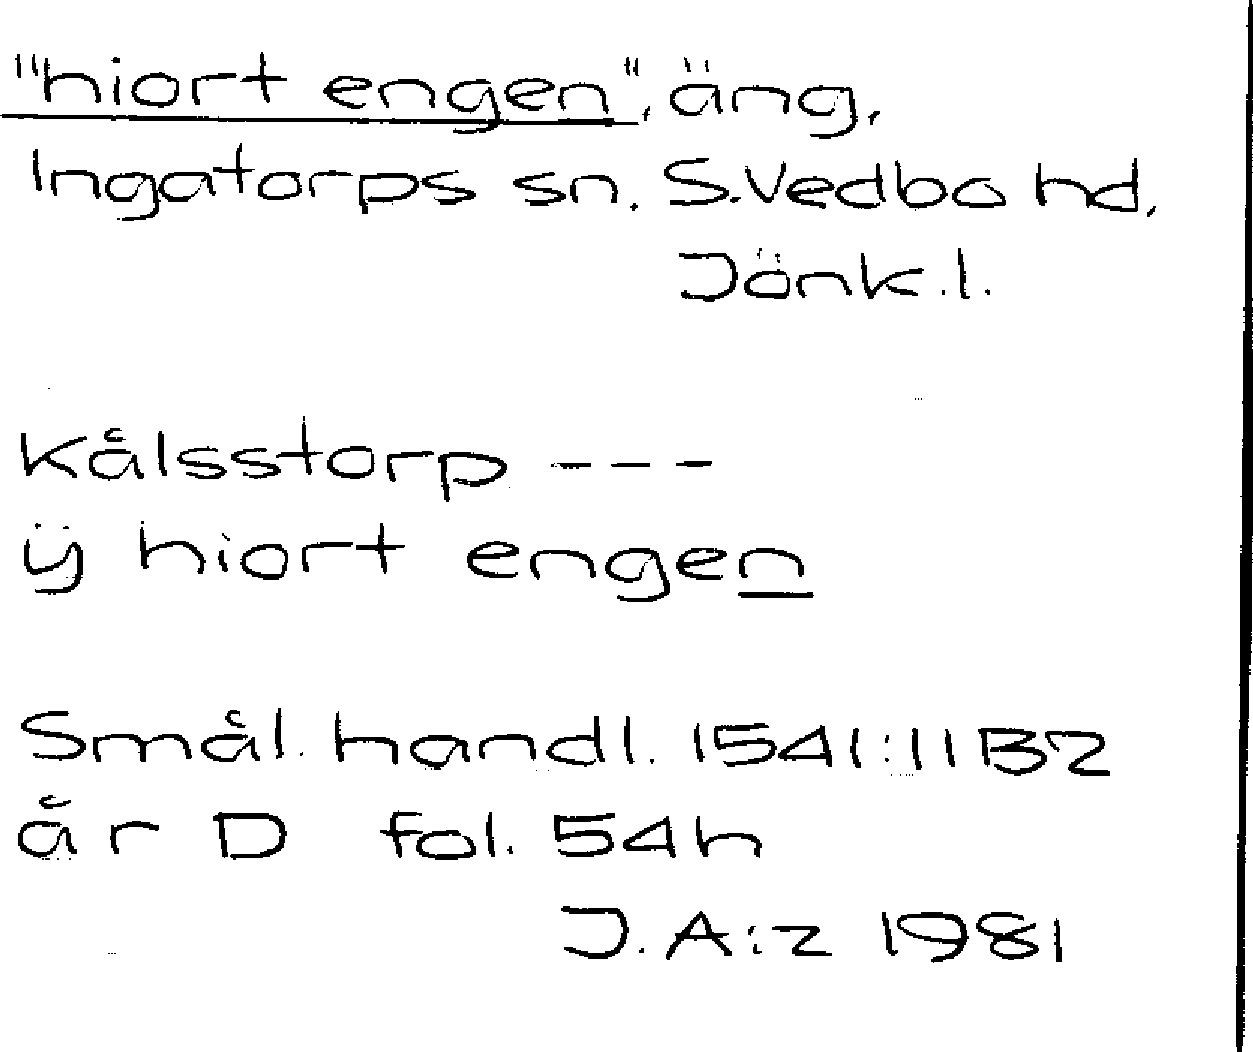 "hiort engen", äng,
Ingatorps sn. S.Vedbo hd,
Jönk.l.
Kålsstorp ---
ÿ hiort engen
Smål. handl. 1541:11 B2
år D fol. 54h
J.A:z 1981